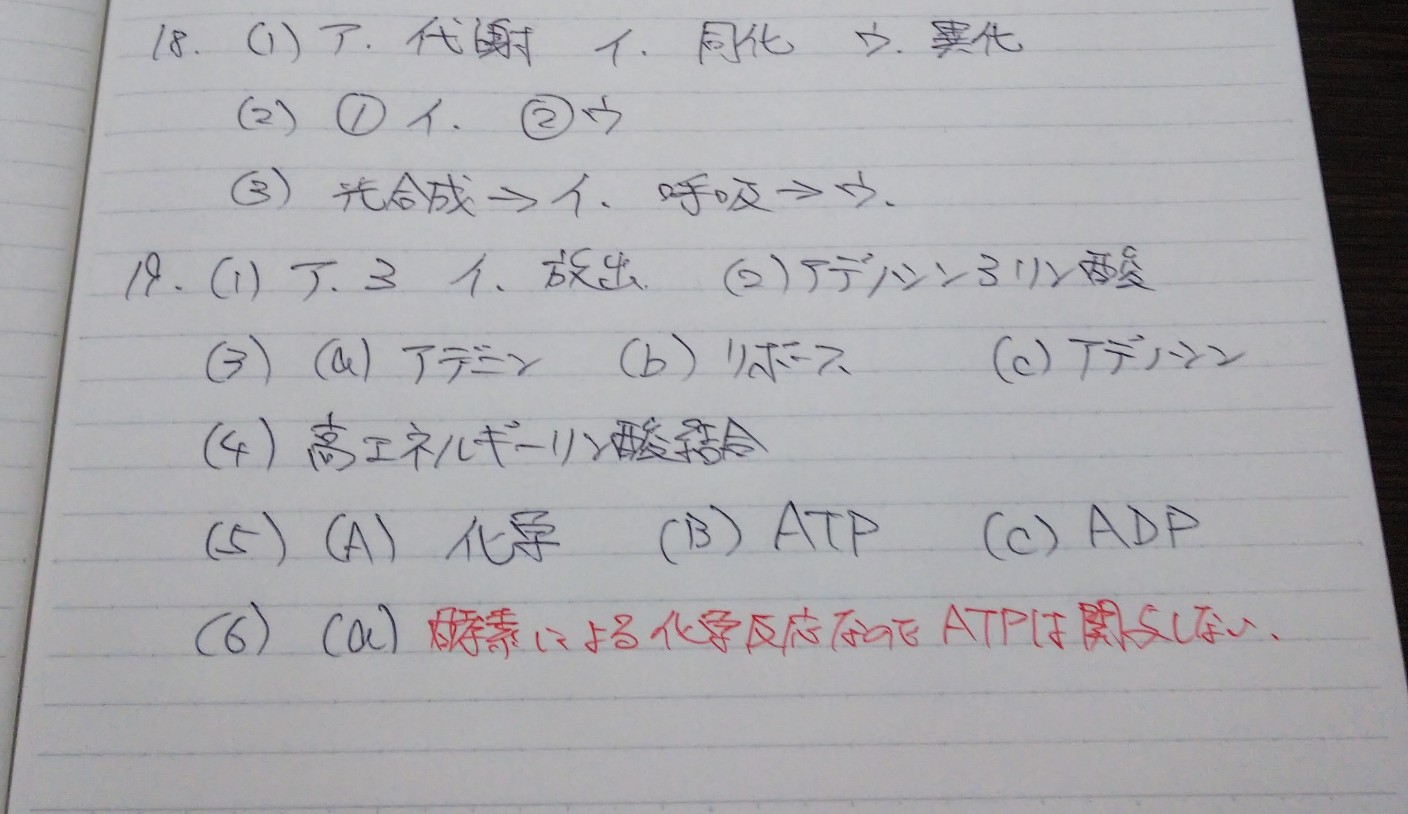 18. (1) ア. 代謝 イ. 同化 ウ. 異化
(2) ① イ. ② ウ
(3) 光合成→イ. 呼吸→ウ.
19. (1) ア. 3 イ. 放出 (2) アデノシン3リン酸
(3) (a) アデニン (b) リボース (c) アデノシン
(4) 高エネルギーリン酸結合
(5) (A) 化学 (B) ATP (C) ADP
(6) (a) 酵素による化学反応なのでATPは関与しない.